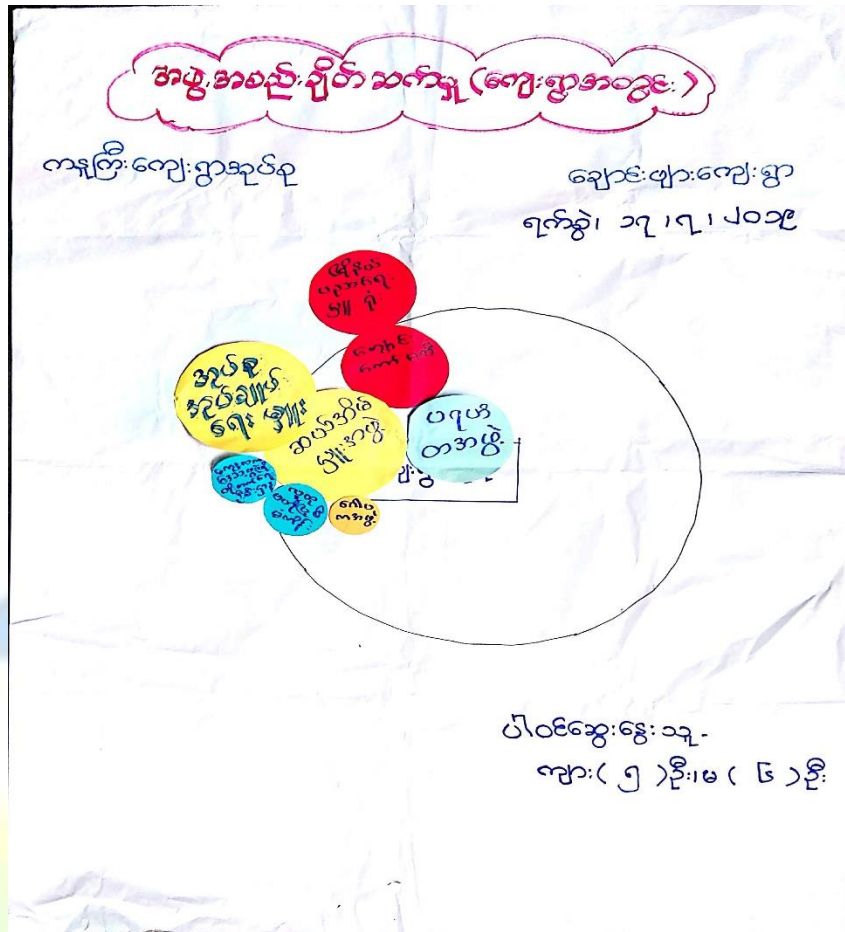 အဖွဲ့အစည်းချိတ်ဆက်မှု (ကျေးရွာအတွင်း)
ကနူကြီးကျေးရွာအုပ်စု
ချောင်းဖျားကျေးရွာ
ရက်စွဲ၊ ၁၇ ၊ ၇ ၊ ၂၀၁၉
မြို့နယ်
ပညာရေး
မှူး ရုံး
ကျောင်း
ကော်မတီ
အုပ်စု
အုပ်ချုပ်
ရေး မှူး
ဆယ်အိမ်
မှူးအဖွဲ့
ပရဟိ
တအဖွဲ့
ပါဝင်ဆွေးနွေးသူ-
ကျား( ၅ )ဦး၊မ ( ၆ )ဦး